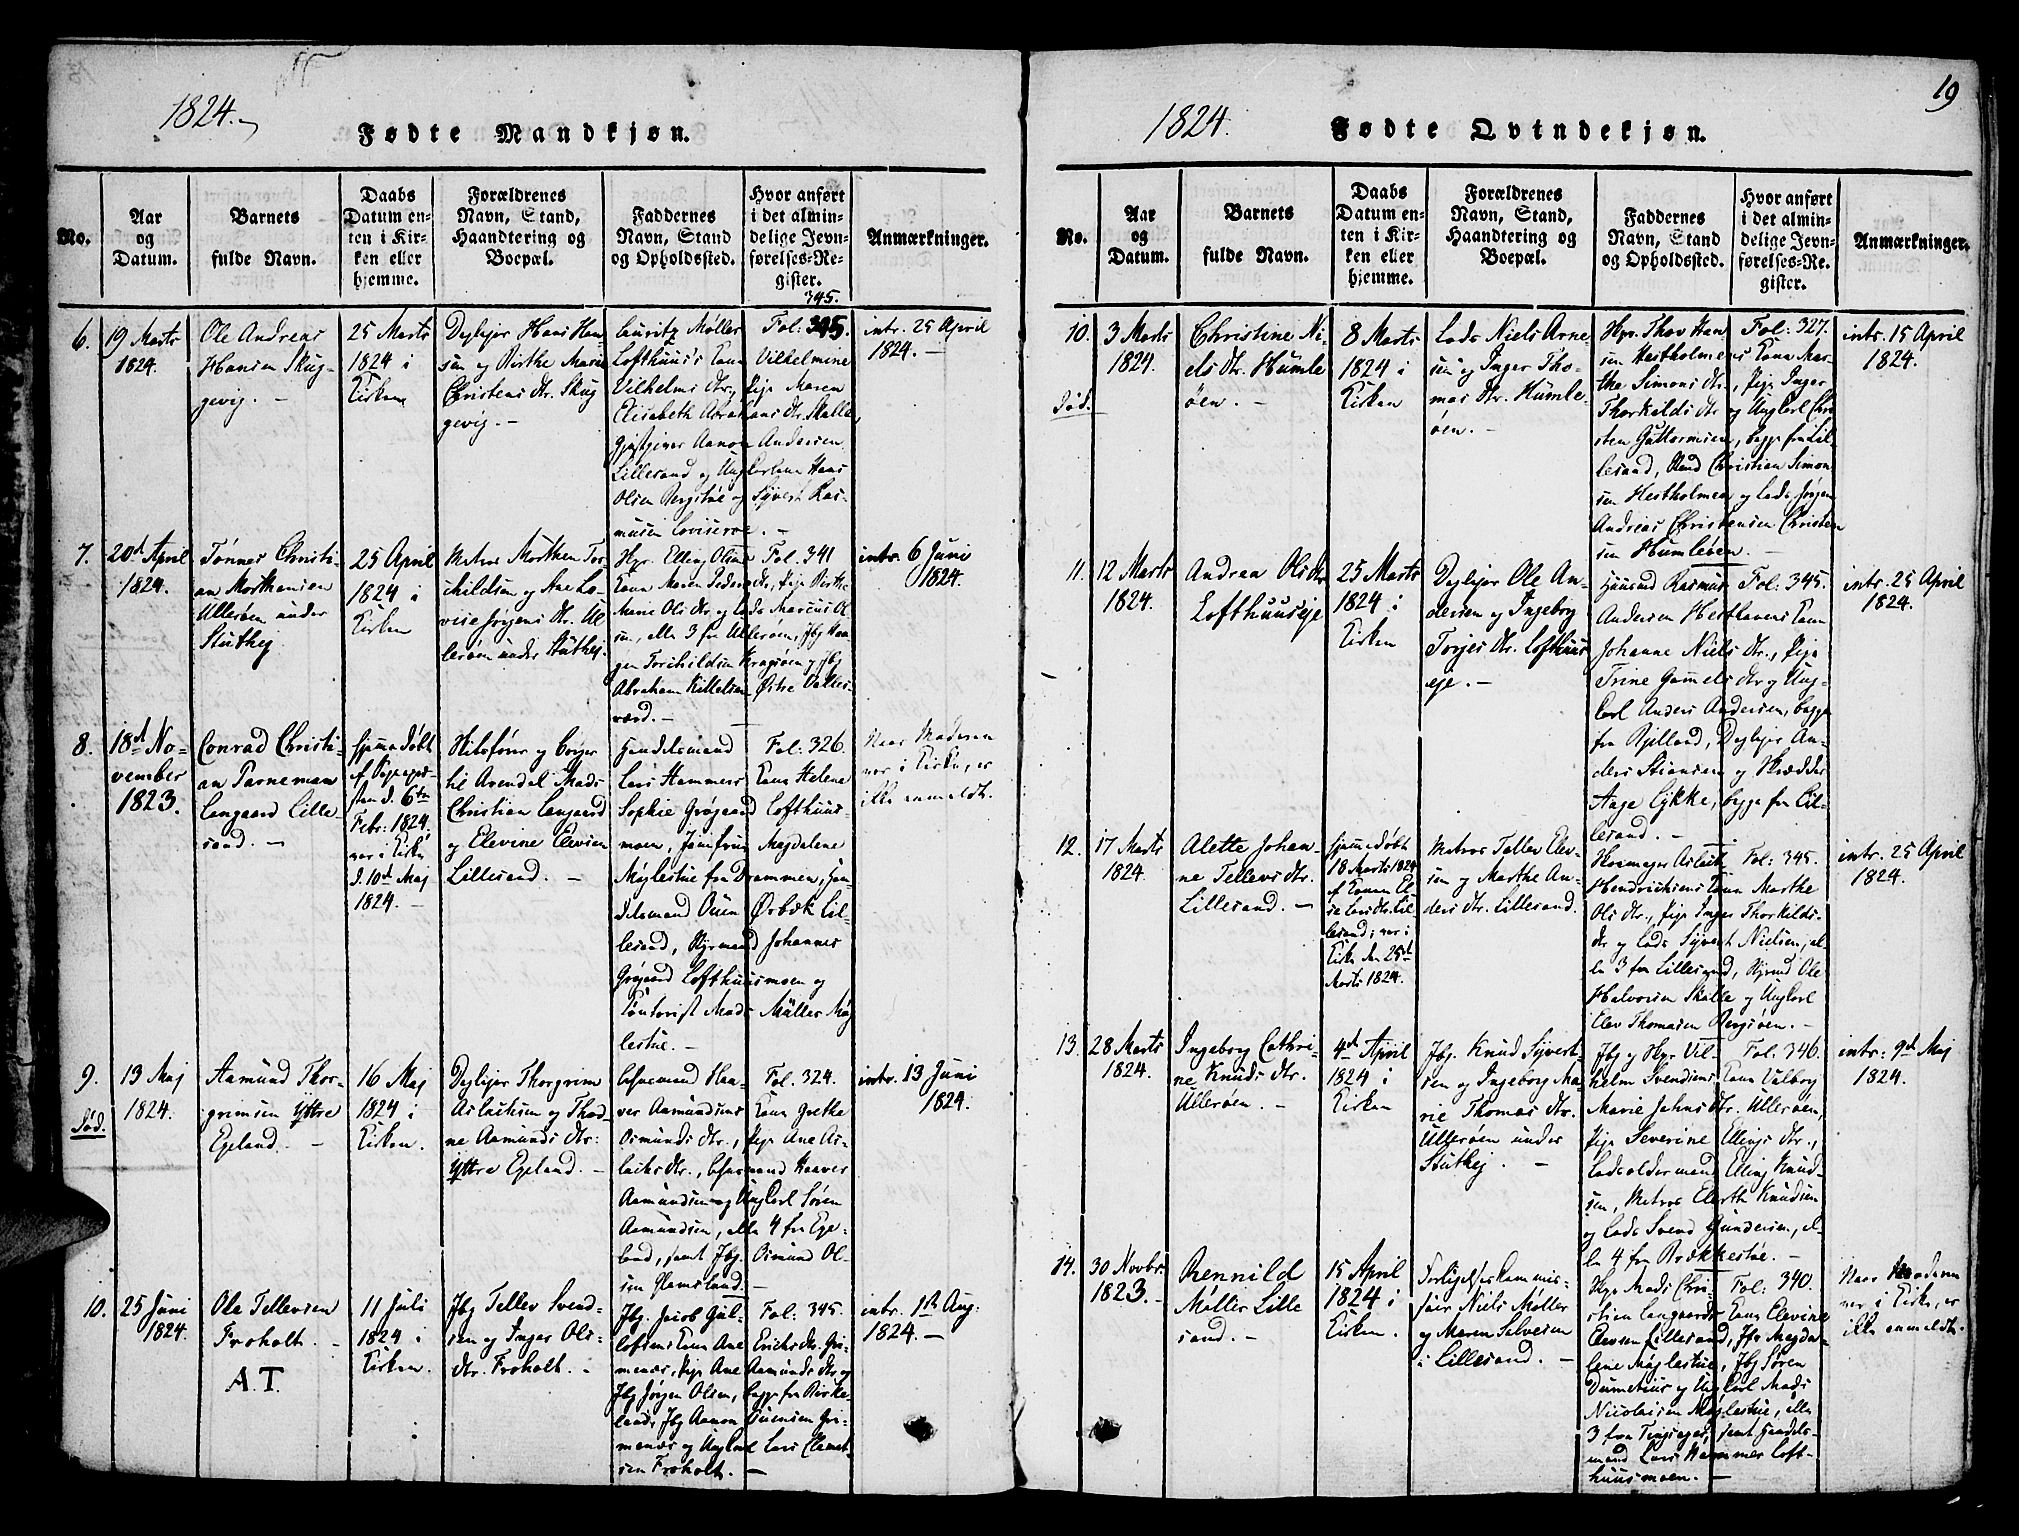 19
1824.
Fødte Mandkjøn.
No.
Aar
og
Datum.
Barnets
fulde Navn.
Daabs
Datum en-
ten i Kir-
ken eller
hjemme.
Forældrenes
Navn, Stand,
Haandtering og
Boepæl.
Faddernes
Navn, Stand
og Opholdssted.
Hvor anført
i det almin-
delige Jevn-
førelses-Re-
gister.
Anmærkninger.
6.
19 Marts
1824.
Ole Andreas
Hansen Skug-
gevig. -
25 Marts
1824 i
Kirken
Hans Han-
sen og Birthe Marie
Christens dtr. Skug
gevig. -
Lauritz Møller
Lofthuus's Kone Vilhelmine
Vilhelms dtr, Pige Maren
Elisabeth Abrahams dtr. Skalle,
Gjæstgiver Aanon Andersen
Lillesand og Ungkarlene Hans
Olsen Bergstøe og Syvert Ras-
musen
345.
Fol: 345.
intr. 25 April
1824. -
7.
20d April
1824.
Tønnes Christi-
an Morthensen
Ulleröen under
Stuthej
25 April
1824 i
Kirken
Matros Morthen Ter-
childsen og Ane Lo-
vise Jörgens dtr. Ul-
leröen under Stuthej.
Elling Olsens
Kone Maren Peders dtr, Pige Birthe
Marie Ols dtr og Lods Marcus Ol-
sen, alle 3 fra Ulleröen,
gen Terchildsen Kragsøen og Jbg
Abraham Killelsen Østre Valles-
værd. -
Fol. 341
intr. 6 Juni
1824.
8.
18d No-
vember
1823.
Conrad Christi-
an Parneman
Langaard Lille
sand. -
hjemmedøbt
af
d. 6te
Febr: 1824.
var i Kirken
d. 10d Maj
1824. -
og Borger
til Arendal Mads
Christian Langaard
og Elevine Elevsen
Lillesand. -
Handelsmand
Lars Hammers Kone Helene
Sophie Grøgaard Lofthuus-
moen, Jomfrue Magdalene
Møglestue fra Drammen, Han-
delsmand Ouen Ørbæk Lil-
lesand, Johannes
Grøgaard Lofthuusmoen og
Contorist Mads Møller Møg
lestue. -
Fol: 326.
Naar Moderen
var i Kirken, er
ikke anmeldt.
9.
Død.
13 Maj
1824.
Aamund Thor-
grimsen Yttre
Egeland. -
16 Maj
1824 i
Kirken.
Thorgrim
Aslachsen og Tho-
ne Aamunds dtr:
Yttre Egeland. -
Haa-
ver Aamundsens Kone Grethe
Osmunds dtr., Pige Ane As-
lachs dtr., Haaver
Aamundsen og Ungkarl Søren
Aamundsen, alle 4 fra Ege-
land, samt Jbg. Osmund Ol-
sen Glamsland. -
Fol. 324.
intr. 13 Juni
1824.
10.
25 Juni
1824.
Ole Tellevsen
Froholt. -
A.T.
11 Juli
1824 i
Kirken.
Jbg Tellev Svend-
sen og Inger Ols-
dtr. Froholt. -
Jbg. Jacob Gul-
lofsens Kone Ane Erichs dtr. Gri-
menæs, Pige Ane Aamunds dtr og
Jbg Jørgen Olsen, begge fra Birke-
land, Jbg Aanon Ouensen Gri-
menæs og Ungkarl Lars Clemet-
sen Froholt. -
Fol: 345.
intr. 1st Aug:
1824. -
1824.
Fødte Qvindekjøn.
No.
Aar
og
Datum.
Barnets
fulde Navn.
Daabs
Datum en-
ten i Kir-
ken eller
hjemme.
Forældrenes
Navn, Stand,
Haandtering og
Boepæl.
Faddernes
Navn, Stand
og Opholdssted.
Hvor anført
i det almin-
delige Jevn-
førelses-Re-
gister.
Anmærkninger.
10.
Død.
3 Marts
1824.
Christine Ni-
els dtr. Humle
öen. -
8 Marts
1824 i
Kirken
Lods Niels Arne-
sen og Inger Tho-
mas dtr. Humle-
öen. -
Thor Han
sen Hestholmens Kone Mar-
the Simons dtr., Pige Inger
Thorkilds dtr og Ungkarl Chri-
sten Guttormsen, begge fra Lil-
lesand, Christian Simon
sen Hestholmen og Lods Jørgen
Andreas Christensen Christen
sen Humleöen. -
Fol: 327.
intr. 15 April
1824.
11.
12 Marts
1824.
Andrea Ols dtr
Lofthuuseje
25 Marts
1824 i
Kirken
Ole An-
dersen og Ingeborg
Torjes dtr. Lofthuus
eje. -
Rasmus
Andersen Hesthavens Kone
Johanne Niels dtr., Pige
Trine Gamels dtr og Ung-
karl Anders Andersen, begge
fra Kjelland, An-
ders Stiansen og Skrædder
Aage Lykke, begge fra Lil-
lesand. -
Fol: 345.
intr. 25 April
1824.
12.
17 Marts
1824.
Alette Johan-
ne Tellevs dtr.
Lillesand. -
hjemmedøbt
18 Marts 1824
af Konen El-
se Lars dtr. Lil-
lesand; var i
Kirken den 25de
Marts 1824.
Matros Tellev Elev-
sen og Marthe An-
ders dtr. Lillesand.
Skomager Aslach
Hendrichsens Kone Marthe
Ols dtr, Pige Inger Thorkilds-
dtr og Lods Syvert Nielsen, al-
le 3 fra Lillesand, Ole
Halvorsen Skalle og Ungkarl
Elev Thomasen Bergsøen. -
Fol: 345.
intr. 25 April
1824.
13.
28 Marts
1824.
Ingeborg Cathri-
ne Knuds dtr.
Ulleröen. -
4d April
1824 i
Kirken
Jbg. Knud Syvert-
sen og Ingeborg Ma-
rie Thomas dtr.
Ulleröen under
Stuthej. -
Vil-
helm Svendsens Kone Valborg
Marie Jahns dtr. Ulleröen,
Pige Severine Ellings dtr.,
Lodsoldermand Elling Knud-
sen, Matros Elerth Knudsen
og Lods Svend Gundersen, al-
le 4 fra Brækkestøe. -
Fol. 346.
intr: 9d Maj
1824.
14.
30 Novbr.
1823. -
Rennild
Møller Lille
sand. -
15 April
1824 i
Kirken.
Forligelses Commis-
sair Niels Møller
og Maren Salvesen
i Lillesand. -
Mads Chri-
stian Langaards Kone Elevine
Elevsen Lillesand, Jfr Magda-
lene Møglestue, Jbg Søren
Dumetius og Ungkarl Mads
Nicolaisen Møglestue, alle
3 fra Tingsager, samt Handels-
mand Lars Hammer Loft-
huusmoen. -
Fol: 340.
Naar Moderen
var i Kirken, er
ikke anmeldt.